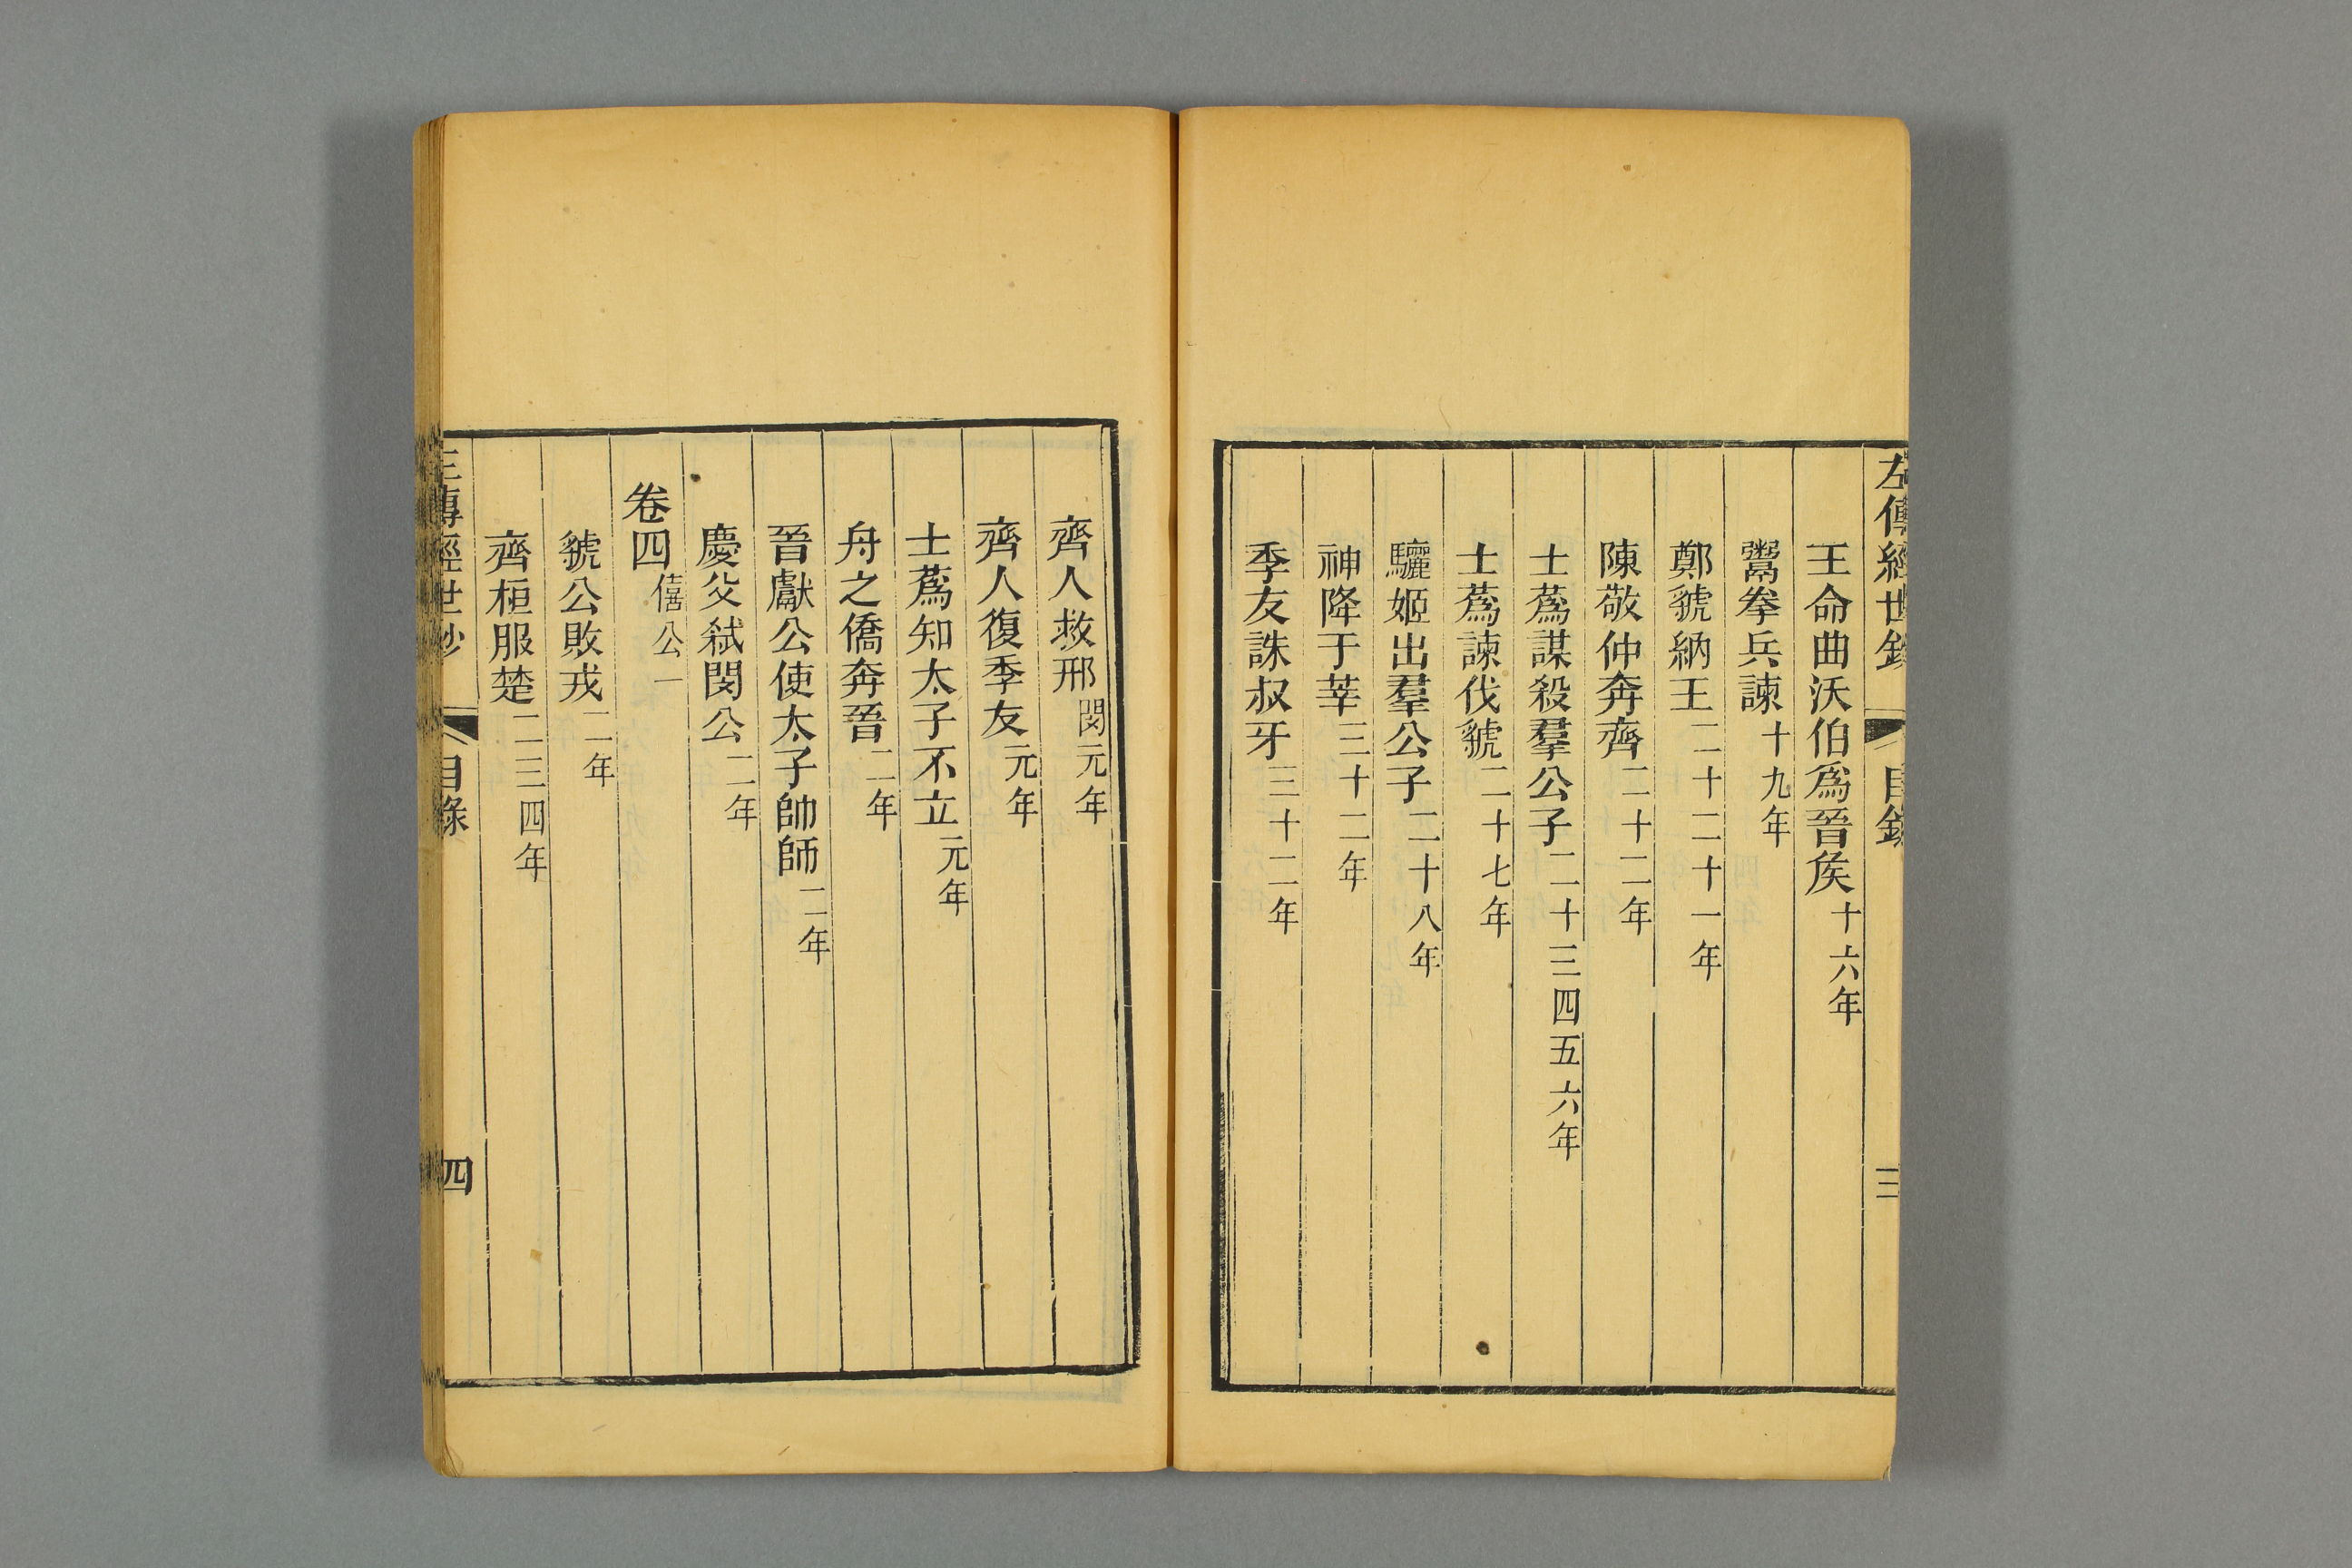 左傳經世鈔 目錄 三
王命曲沃伯爲晉侯十六年
鬻拳兵諫十九年
鄭虢納王二十二十一年
陳敬仲奔齊二十二年
士蔿謀殺羣公子二十三四五六年
士蔿諫伐虢二十七年
驪姬出羣公子二十八年
神降于莘三十二年
季友誅叔牙三十二年
齊人救邢閔元年
齊人復季友元年
士蔿知太子不立元年
舟之僑奔晉二年
晉獻公使太子帥師二年
慶父弒閔公二年
卷四僖公一
虢公敗戎二年
齊桓服楚二三四年
左傳經世鈔 目錄 四